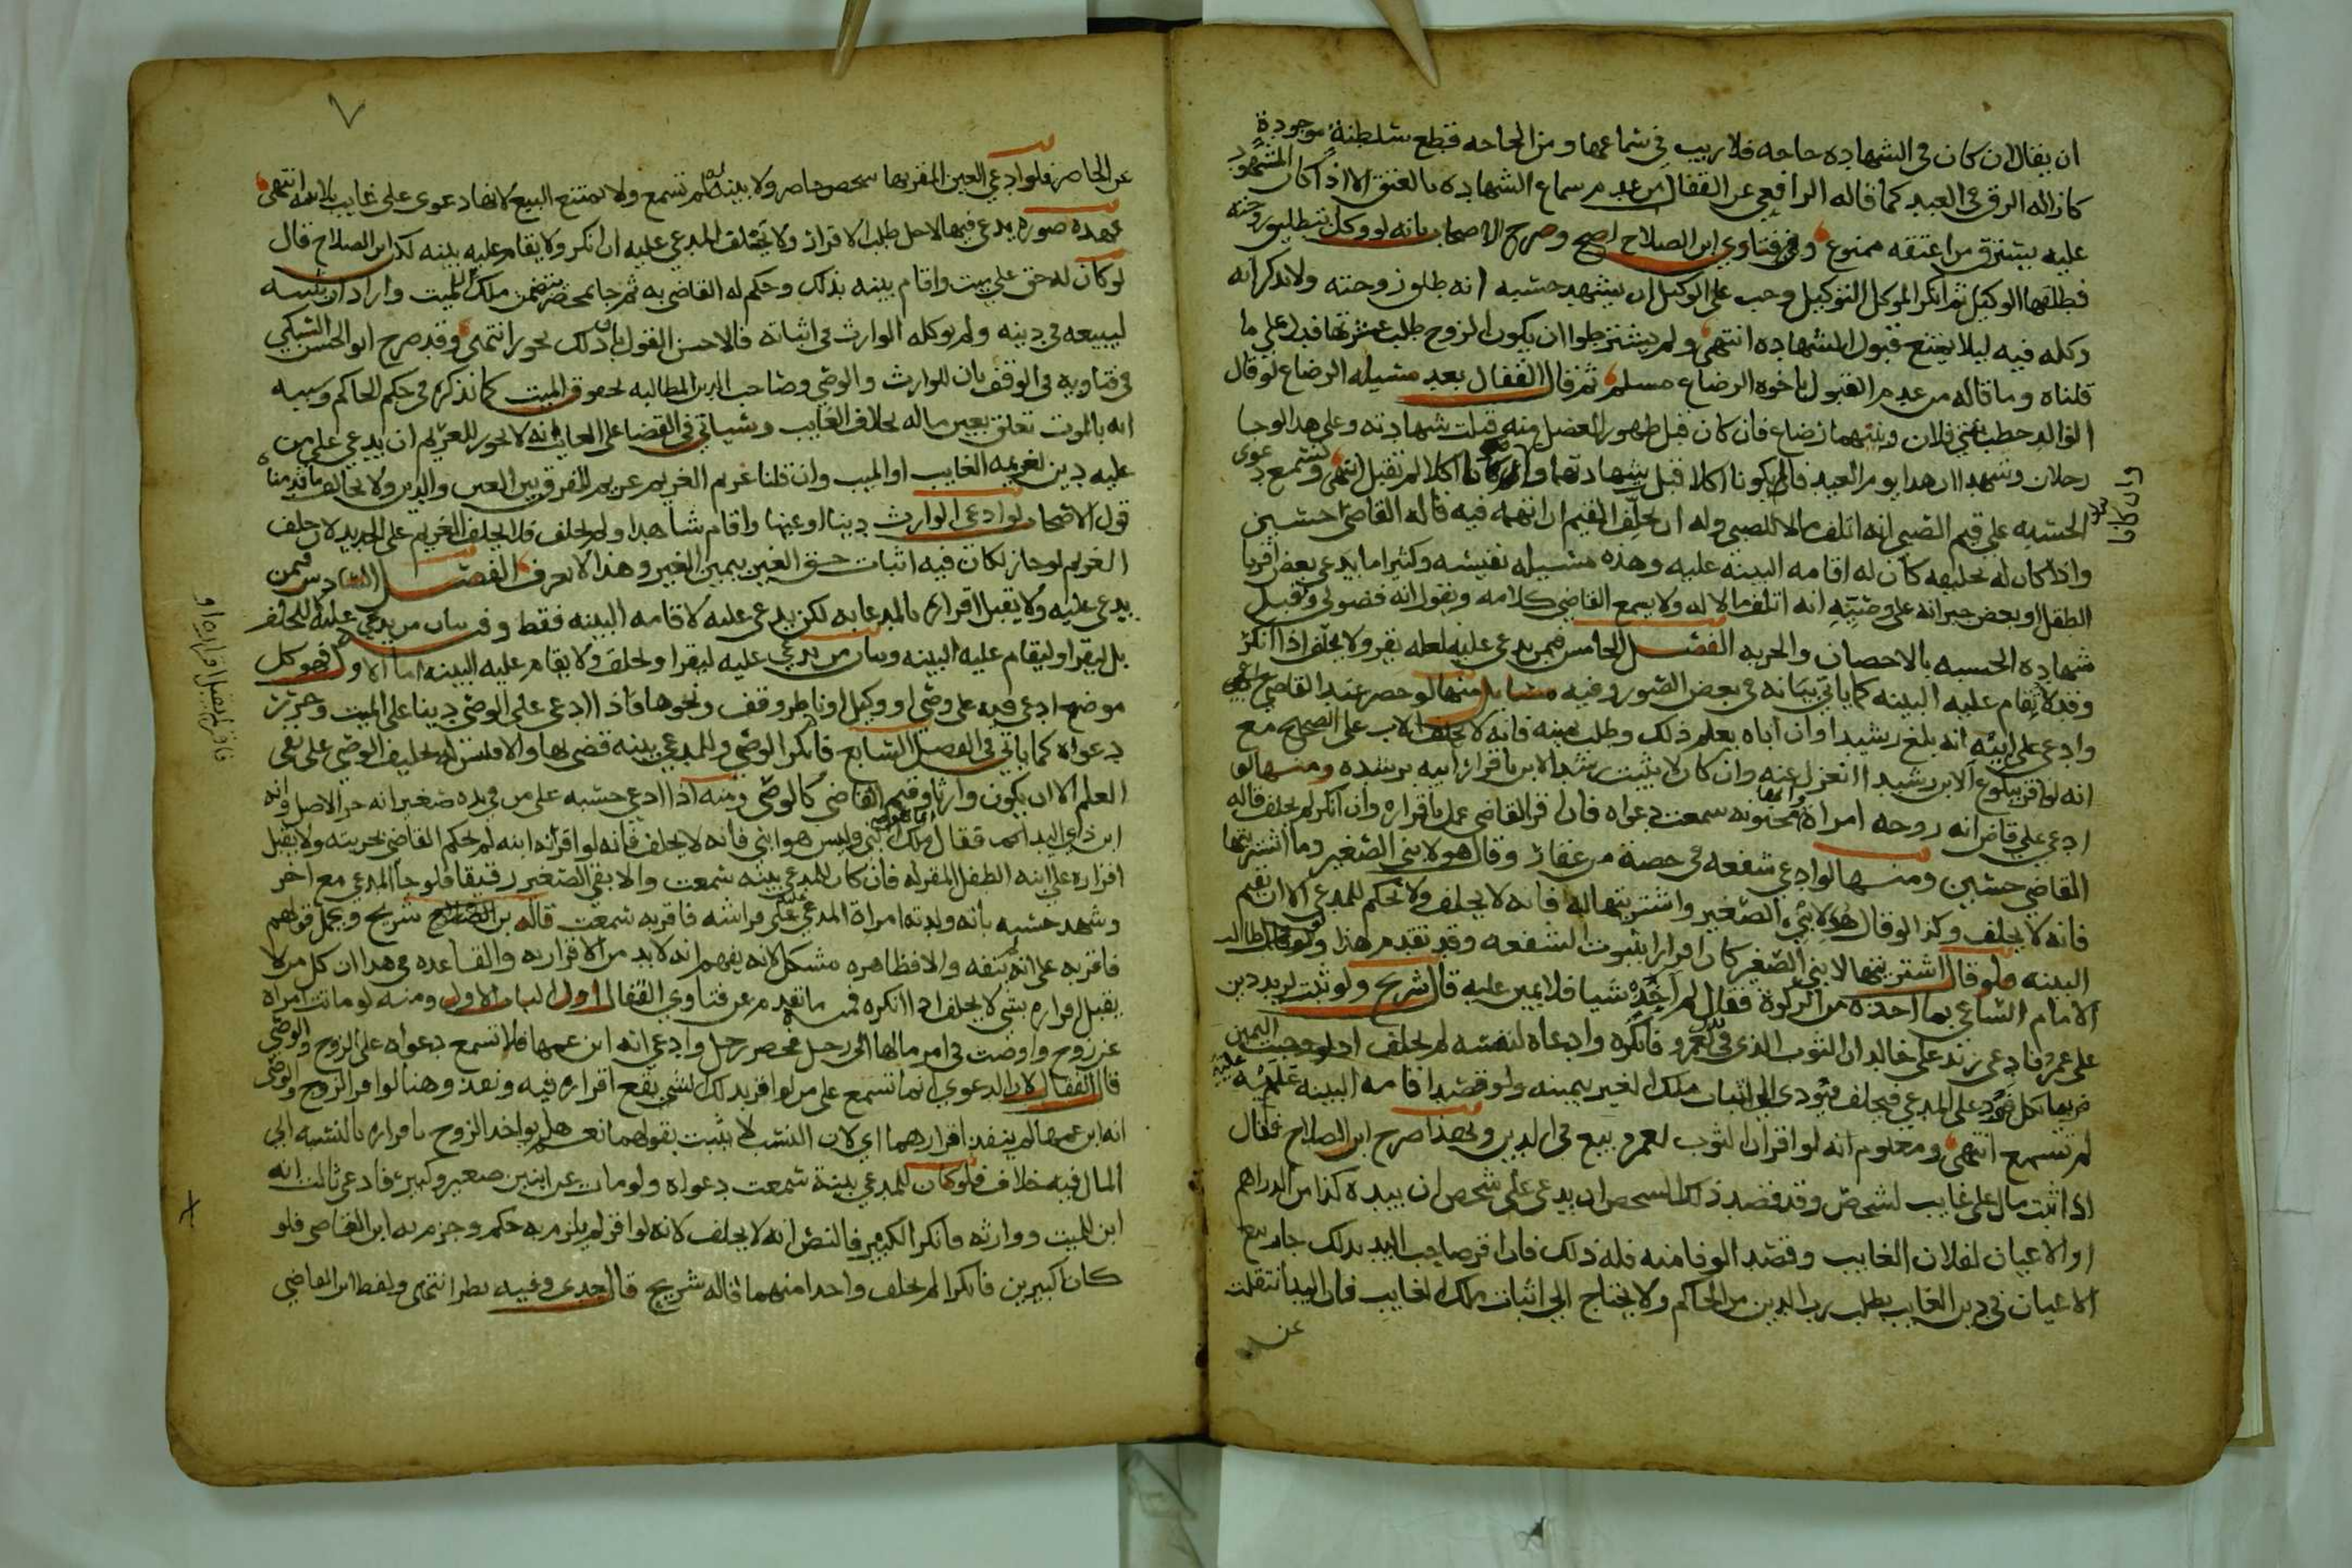 ان يقال ان كان في الشهاده حاجه فلا ريب في سماعها ومن الحاجه قطع سلطنة موجودة
كازاله الرق في العبد كما قاله الرافعي عن القفال من عدم سماع الشهاده بالعتق الا اذا كان المشهود
عليه يسترق من اعتقه ممنوع وفي فتاوي ابن الصلاح اصح وصرح الاصحاب بانه لو وكل بتطليق زوجته
فطلقها الوكيل ثم انكر الموكل التوكيل وجب على الوكيل ان يشهد حسبه انه طلق زوجته ولا يذكر انه
وكله فيه ليلا يمتنع قبول الشهاده انتهى ولم يشترطوا ان يكون الزوج طلب عشرتها فدل على ما
قلناه وما قاله من عدم القبول باخوه الرضاع مسلم ثم قال القفال بعد مسيله الرضاع لو قال
الوالد خطب بنتي فلان وبينهما رضاع فان كان قبل ظهور العضل منه قبلت شهادته وعلى هذا لو جا
رجلان وشهدا ان هذا يوم العيد فان لم يكونا اكلا قبل شهادتهما وان كانا اكلا لم تقبل انتهى وتسمع دعوى
الحسبه على قيم الصبي انه اتلف مالا للصبي وله ان يحلف القيم ان اتهمه فيه قاله القاضي حسين
واذا كان له تحليفه كان له اقامه البينه عليه وهذه مسيله نفيسه وكثيرا ما يدعي بعض اقربا
الطفل او بعض جيرانه على وصيه انه اتلف مالا له ولا يسمع القاضي كلامه ويقول انه فضولي وتقبل
شهاده الحسبه بالاحصان والحريه الفصل الخامس فيمن يدعي عليه لعله يقر ولا يحلف اذا انكر
وقد لا يقام عليه البينه كما ياتي بيانه في بعض الصور وفيه مسايل منها لو حضر عند القاضي
وادعى على ابيه انه بلغ رشيدا وان اباه يعلم ذلك وطلب يمينه فانه لا يحلف الاب على الصحيح مع
انه لو اقر ببلوغ الابن رشيدا انعزل عنه وان كان لا يثبت رشد الابن باقرار ابيه برشده ومنها لو
ادعى على قاض انه زوجه امراة مجنونه سمعت دعواه فان اقر القاضي عمل باقراره وان انكر لم يحلف قاله
القاضي حسين ومنها لو ادعى شفعه في حصة من عقار وقال هو لابني الصغير وما اشتريتها
فانه لا يحلف وكذا لو قال هو لابني الصغير واشتريتها له فانه لا يحلف ولا تحكم للمدعي الا ان يقيم
البينه فلو قال اشتريتها لابني الصغير كان اقرارا بثبوت الشفعه وقد تقدم هذا ولو طالب
الامام الساعي بما اخذه من الزكوة فقال لم اخذ شيا فلا يمين عليه قال شريح ولو ثبت لزيد دين
على عمرو فادعى زيد على خالد ان الثوب الذي في لعمرو فانكره وادعاه لنفسه لم يحلف اذ لو وجبت اليمين
فربما نكل فترد على المدعي فيحلف فيؤدي الى اثبات ملك الغير بيمينه ولو قصد اقامه البينه عليه
لم تسمع انتهى ومعلوم انه لو اقر ان الثوب لعمرو بيع في الدين وبهذا صرح ابن الصلاح فقال
اذا اثبت مال على غايب لشخص وقد قصد ذلك الشخص ان يدعي على شخص ان بيده كذا من الدراهم
او الاعيان لفلان الغايب وقصد الوفا منه فله ذلك فان اقر صاحب اليد بذلك جاز بيع
الاعيان في دين الغايب بطلب رب الدين من الحاكم ولا يحتاج الى اثبات ملك الغايب فان اليد انتقلت
عن
٧
عن الحاضر فلو ادعي العين المقر بها شخص حاضر ولا بينه له لم تسمع ولا يمتنع البيع لانها دعوى على غايب بلا بينه انتهى
فهذه صوره يدعى فيها لاجل طلب الاقرار ولا يحلف المدعى عليه ان انكر ولا يقام عليه بينه لكن ابن الصلاح قال
لو كان له حق على ميت واقام بينه بذلك وحكم له القاضي به ثم جا بمحضر يتضمن ملك الميت واراد ان يثبته
ليبيعه في دينه ولم يوكله الوارث في اثباته فالاحسن القول بان ذلك يجوز انتهى وقد صرح ابو الحسن السبكي
في فتاويه في الوقف بان للوارث والوصي وصاحب الدين المطالبه بحقوق الميت كما نذكره في حكم الحاكم وسببه
انه بالموت تعلق بعين ماله بخلاف الغايب وسياتي في القضا على الغايب انه لا يجوز للغريم ان يدعي على من
عليه دين لغريمه الغايب او الميت وان قلنا غريم الغريم غريم للفرق بين العين والدين ولا يخالف ما قدمنا
قول الاصحاب لو ادعى الوارث دينا او عينا واقام شاهدا ولم يحلف فلا يحلف الغريم على الجديد لان حلف
الغريم لو جاز لكان فيه اثبات حق الغير بيمين الغير وهذا لا يعرف الفصل السادس فيمن
يدعى عليه ولا يقبل اقراره بالمدعا به لكن يدعى عليه لاقامه البينه فقط وفي بيان من يدعي عليه لا ليحلف
بل ليقر او ليقام عليه البينه وبيان من يدعى عليه ليقر او يحلف ولا يقام عليه البينه اما الاول فهو كل
موضع ادعي فيه على وصي او وكيل او ناظر وقف ونحوها فاذا ادعى على الوصي دينا على الميت وحرر
دعواه كما ياتي في الفصل السابع فانكر الوصي وللمدعي بينه قضى بها والا فليس له تحليف الوصي على نفي
العلم الا ان يكون وارثا وقيم القاضي كالوصي ومنه اذا ادعى حسبه على من في يده صغير انه حر الاصل وانه
ابن ذي اليد فقال ملكي وليس هو ابني فانه لا يحلف فانه لو اقر انه ابنه لم يحكم القاضي بحريته ولا يقبل
اقراره على ابنه الطفل المقر له فان كان للمدعي بينه سمعت والا بقي الصغير رقيقا فلو جا المدعي مع اخر
وشهد حسبه بانه ولدته امراة المدعى عليه على فراشه فاقر به سمعت قاله شريح ويحمل قولهم
فاقر به على انه لم ينفه والا فظاهره مشكل لانه يفهم انه لا بد من الاقرار به والقاعده في هذا ان كل من لا
يقبل اقراره بشي لا يحلف اذا انكره فمنه ما تقدم عن فتاوي القفال اول الباب الاول ومنه لو ماتت امراة
عن زوج واوصت في امر مالها الى رجل فحضر رجل وادعى انه ابن عمها فلا تسمع دعواه على الزوج والوصي
قال القفال لان الدعوى انما تسمع على من لو اقر بذلك الشي يقع اقراره فيه ونفذ وهنا لو اقر الزوج والوصي
انه ابن عمها لم ينفذ اقرارهما اي لان النسب لا يثبت بقولهما نعم هل يواخذ الزوج باقراره بالنسبه الى
المال فيه خلاف فلو كان للمدعي بينة سمعت دعواه ولو مات عن ابنين صغير وكبير فادعى ثالث انه
ابن للميت ووارثه فانكر الكبير فالنص انه لا يحلف لانه لو اقر لم يلزم به حكم وجزم به ابن القاضي فلو
كان كبيرين فانكرا لم يحلف واحدا منهما قاله شريح قال جدي وفيه نظر انتهى ولفظ ابن القاضي